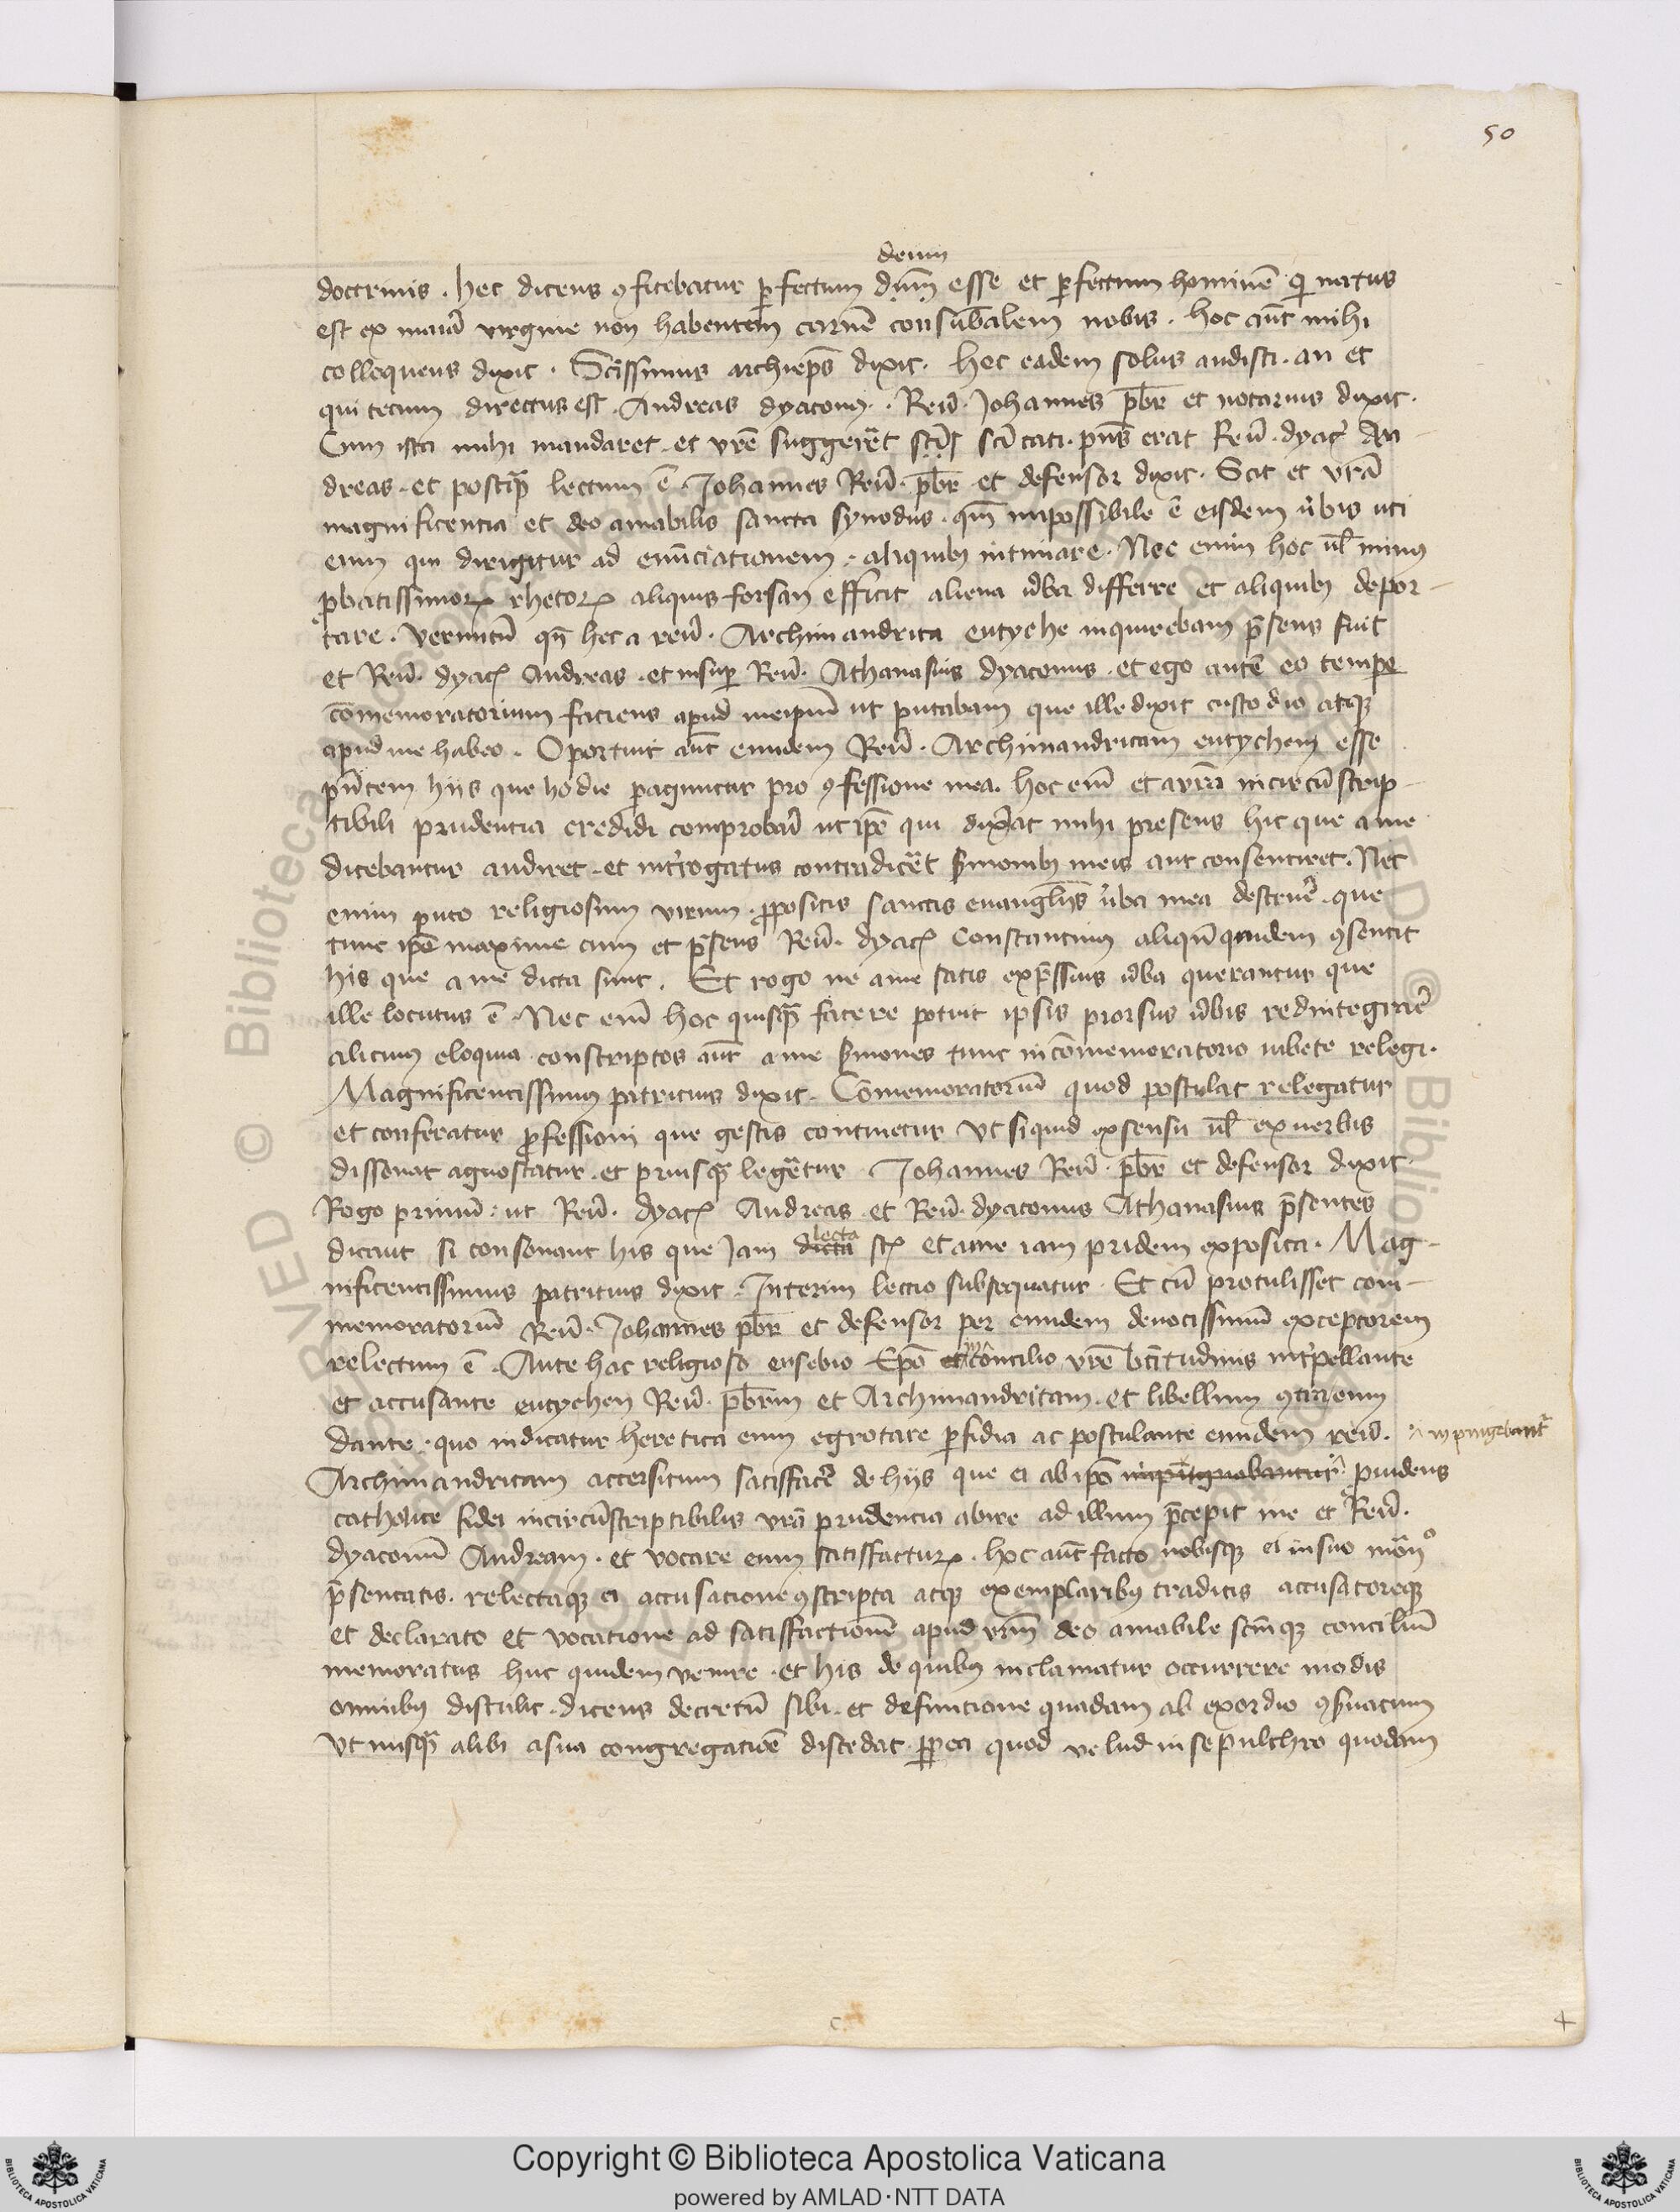 50
deum
doctrinis . hec dicens ꝯfitebatur ꝑfectum dūm esse et ꝑfectum hominē qi natus
est ex maria virgine non habentem carnē consubālem nobis . hoc aūt mihi
colloquens dixit . Scīssimus archiepūs dixit . hec eadem solus audisti . an et
qui tecum directus est . Andreas dyaconꝰ . Reūd . Johannes p̄br et notarius dixit .
Cum ista mihi mandaret . et vrē suggerēt scī scītati . pn̄s erat Reūd . dyac̄ An
dreas . et postqꝫ lectum ē . Johannes Reūd . p̄br et defensor dixit . Scit et vrā
magnificentia et deo amabilis sancta synodus . qm̄ impossibile ē eisdem ūbis uti
eum qui dirigitur ad enūciationem . aliquibꝰ intimare . Nec enim hoc ul̄ minꝰ
ꝓbatissimoꝝ rhetoꝝ aliquis forsan efficit aliena ūba differre et aliquibꝰ depor-
tare . verumtn̄ qn̄ hec a reūd . Archimandrita eutyche inquirebam p̄sens fuit
et Reūd . dyac̄ Andreas . et insuꝑ Reūd . Athanasius dyaconus . et ego autē eo tempe
cōmemoratorium faciens apud meipm̄ ut putabam que ille dixit custodio atqꝫ
apud me habeo . Oportuit aūt eundem Reūd . Archimandritam eutychem esse
pn̄tem hiis que hodie ꝑaguntur pro ꝯfessione mea . hoc enī et a vrā incircūscrip-
tibili prudentia credidi comprobari ut ipē qui dix̄at mihi presens hic que a me
dicebantur audiret . et int̄rogatus contradic̄et s̄monibꝰ meis aut consentiret . Nec
enim puto religiosum virum . ꝓpositis sanctis euangl̄ys ūba mea destruē . que
tunc ipē maxime cum et p̄sens Reūd . dyac̄ Constantinꝰ aliqn̄ quidem ꝯsentit
his que a me dicta sunt . Et rogo ne a me satis exp̄ssius ūba querantur que
ille locutus ē . Nec enī hoc quisqꝫ facere potuit ipsis prorsus ūbis redintegrar̄
alicuiꝰ eloquia . conscriptos aūt a me s̄mones tunc in cōmemoratorio iubete relegi .
Magnificentissimꝰ patricius dixit . Cōmemoratoriū quod postulat relegatur
et conferatur ꝓfessioni que gestis continetur Ut siquid ex sensu ul̄ ex uerbis
dissonat agnoscatur . et priusqꝫ legētur . Johannes Reūd . p̄br et defensor dixit .
Rogo primū . ut Reūd . dyac̄ Andreas . et Reūd . dyaconus Athanasius p̄sentes
lecta
dicant si consonant his que Jam dicta st̄ et a me iam pridem exposita . Mag-
nificentissimus patritius dixit . Interim lectio subsequatur . Et cū protulisset com-
memoratoriū Reūd . Johannes p̄br et defensor per eundem deuotissimū exceptorem
relectum ē . Ante hac religioso eusebio Ep̄o et in concilio vrē bt̄itudinis int̄pellante
et accusante eutychen Reūd . p̄brm et Archimandritam . et libellum ꝯtra eum
dante . quo indicatur heretica eum egrotare ꝑfidia ac postulante eundem reūd . ⁊ inpingebant̄
Archimandritam accersitum satisfacē de hiis que ei ab ipō impingnobantur ꝓuidens
catholice fidei incircūscriptibilis vrā prudencia abire ad illum p̄cepit me et Reūd .
dyaconū Andream . et vocare eum satisfacturꝫ . hoc aūt facto nobisqꝫ ei in suo mōnᵒ
p̄sentatis . relectaqꝫ ei accusacione ꝯscripta atqꝫ exemplaribꝰ traditis accusatoreqꝫ
et declarato et vocatione ad satisfactionē apud vrm̄ deo amabile scm̄qꝫ conciliū
memoratus huc quidem venire . et his de quibꝰ inclamatur occurrere modis
omnibꝰ distulit . dicens decretū sibi . et defuncione quadam ab exordio ꝯs̄uatum
Ut nusqꝫ alibi a sua congregatiōe discedat . ꝓpt̄ea quod velud in sepulchro quodam
Copyright © Biblioteca Apostolica Vaticana
powered by AMLAD·NTT DATA